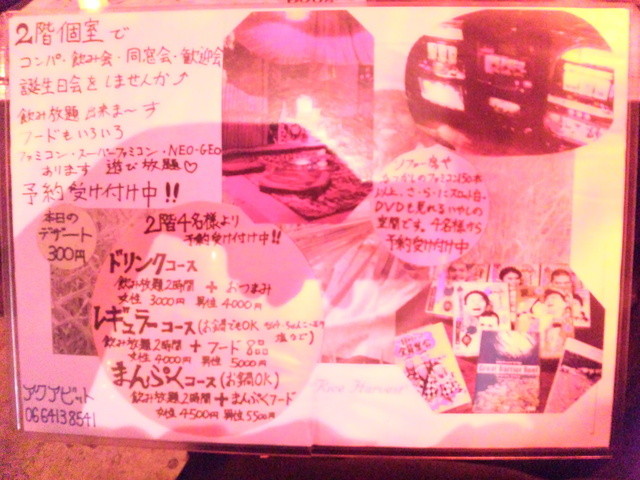 2階個室で
コンパ・飲み会・同窓会・歓迎会
誕生日会をしませんか
飲み放題 出来ま〜す
フードもいろいろ
ファミコン・スーパーファミコン・NEO-GEO
あります 遊び放題♡
予約受け付け中!!
本日の
デザート
300円
2階4名様より
予約受け付け中!!
ドリンクコース
飲み放題2時間 + おつまみ
女性 3000円 男性 4000円
レギュラーコース(お鍋でもOK
飲み放題2時間 + フード8品
女性 4000円 男性 5000円
まんぷくコース(お鍋OK)
飲み放題2時間 + まんぷくフード
女性 4500円 男性 5500円
アクアビット
0664138541
ソファー席や
なつかしのファミコン150本
以上、さ・ら・にスロット台、
DVDも見れるいやしの
空間です。4名様から
予約受け付け中!!